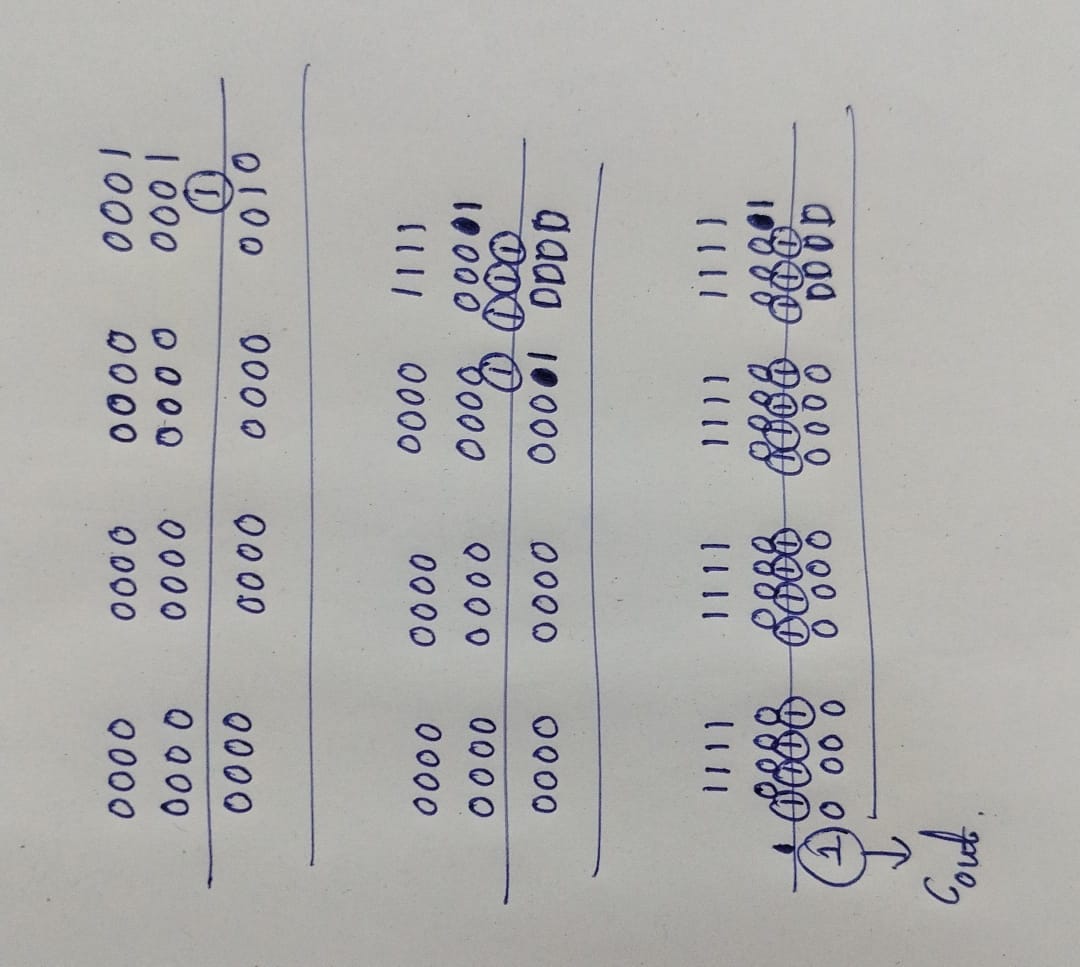 0000 0000 0000 0001
0000 0000 0000 0001
1
0000 0000 0000 0010
0000 0000 0000 1111
0000 0000 0000 0001
1 111
0000 0000 0001 0000
1111 1111 1111 1111
0000 0000 0000 0001
1111 1111 1111 111
1 0000 0000 0000 0000
Cout.